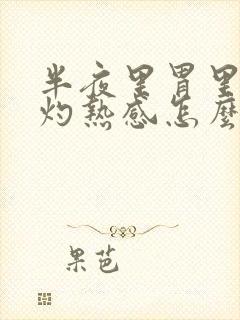 半夜里胃里
灼热感怎麼
果芭